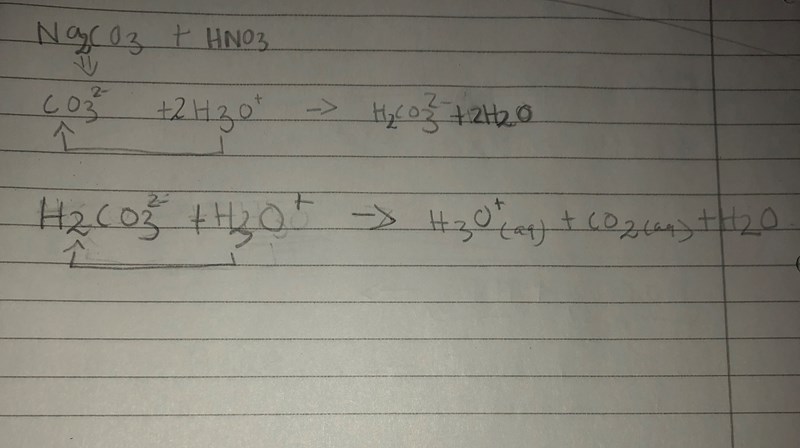 Na2CO3 + HNO3
⇓
CO3²⁻ + 2H3O⁺ → H2CO3²⁻ + 2H2O
H2CO3²⁻ + H3O⁺ → H3O⁺(aq) + CO2(aq) + H2O